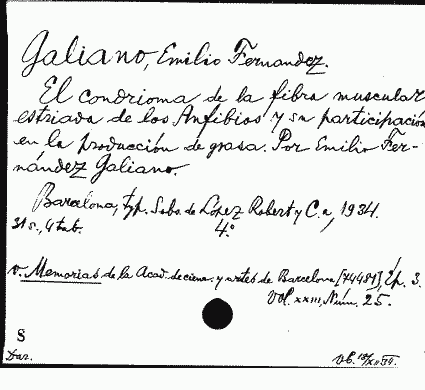 Galiano, Emilio Fernandez.
El condrioma de la fibra muscular
estriada de los Anfibios y su participación
en la producción de grasa. Por Emilio Fer-
nández Galiano.
Barcelona, typ. Sobs. de López Robert y C.a, 1934.
31 s., 4 tab. 4.°
v. Memorias de la Acad. de cienc. y artes de Barcelona [44481], Ép. 3.
Vol. xxiii, Núm. 25.
S
Dar.